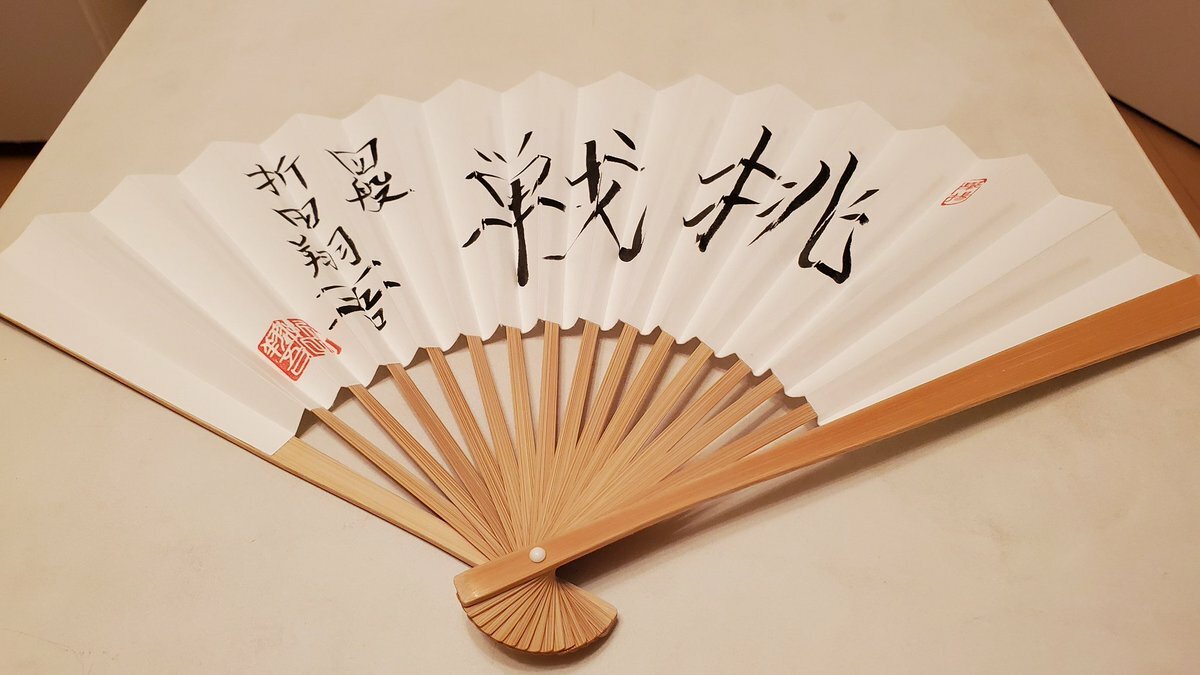 挑戦
四段
折田翔吾